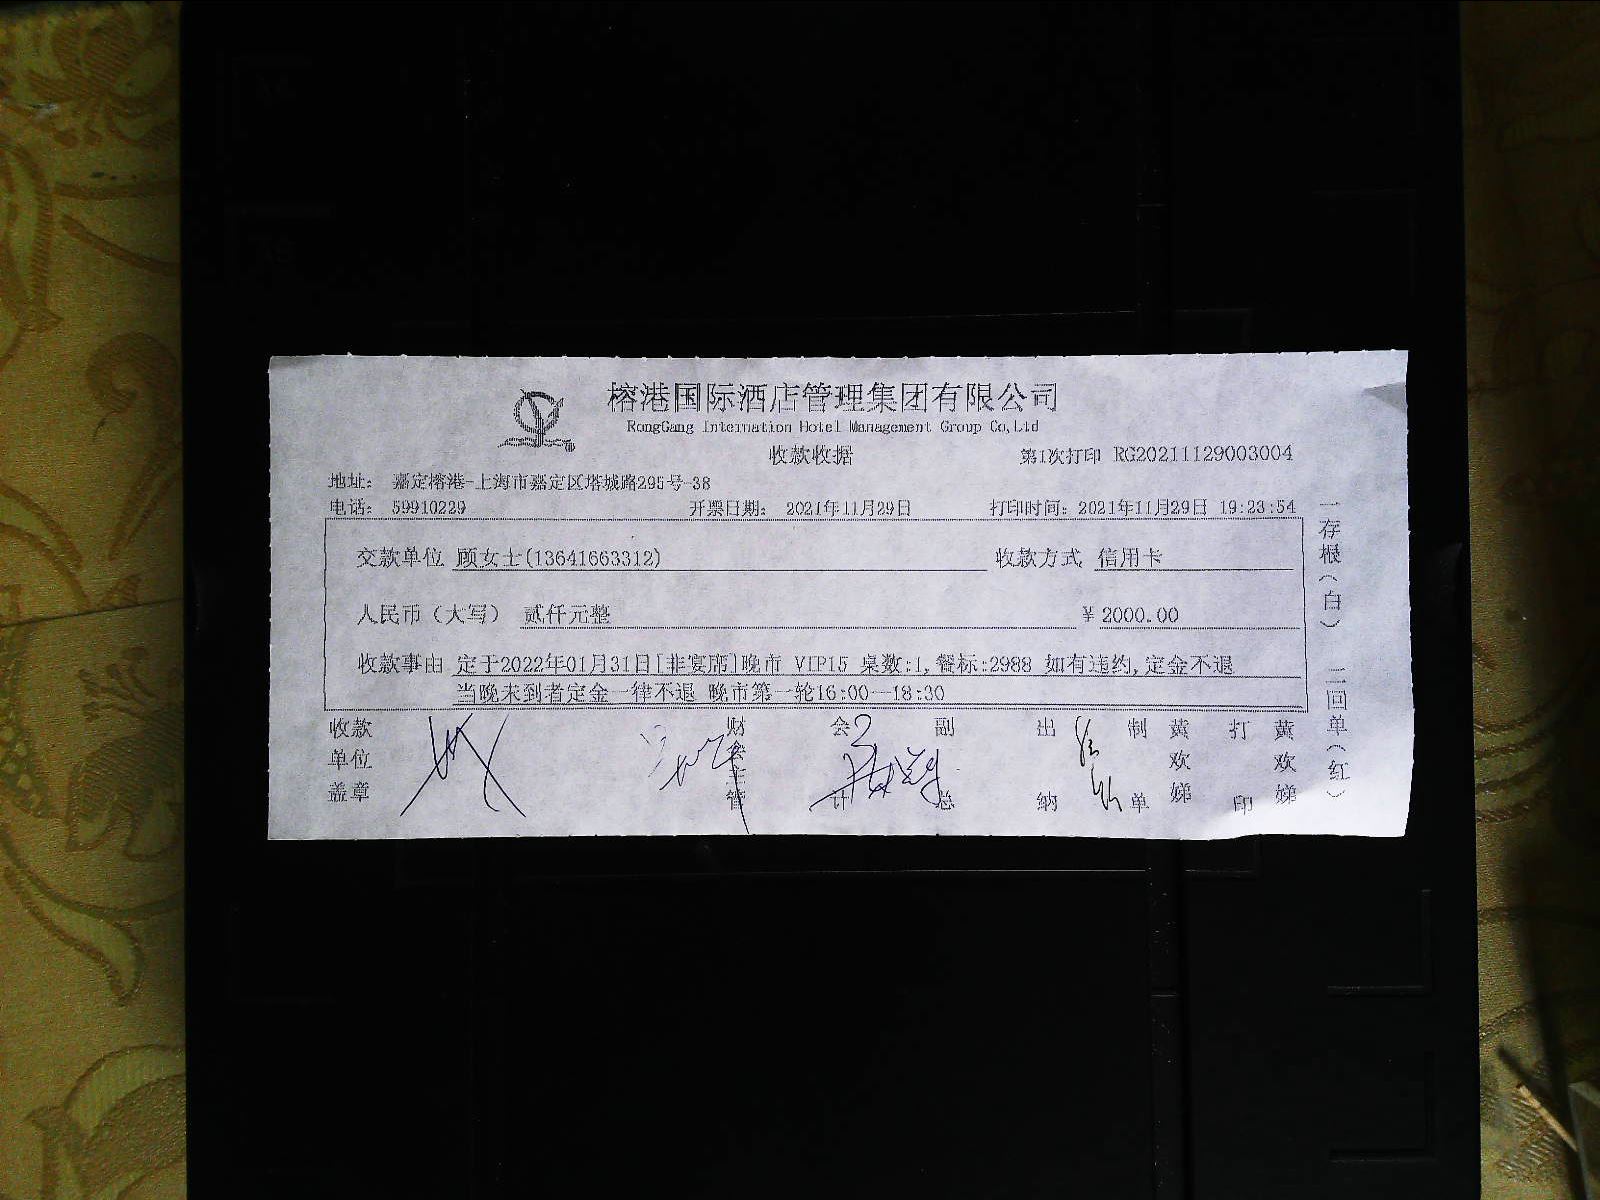 榕港国际酒店管理集团有限公司
RongGang Internation Hotel Management Group Co,Ltd
收款收据
第1次打印 RG20211129003004
地址： 嘉定榕港-上海市嘉定区塔城路295号-38
电话： 59910229 开票日期： 2021年11月29日 打印时间：2021年11月29日 19:23:54
交款单位 顾女士(13641663312) 收款方式 信用卡
人民币（大写） 贰仟元整 ¥ 2000.00
收款事由 定于2022年01月31日[非宴席]晚市 VIP15 桌数:1,餐标:2988 如有违约,定金不退
当晚未到者定金一律不退 晚市第一轮16:00--18:30
收款单位盖章 财会主管 会计 副总 出纳 制单 黄欢娣 打印 黄欢娣
一存根（白） 二回单（红）